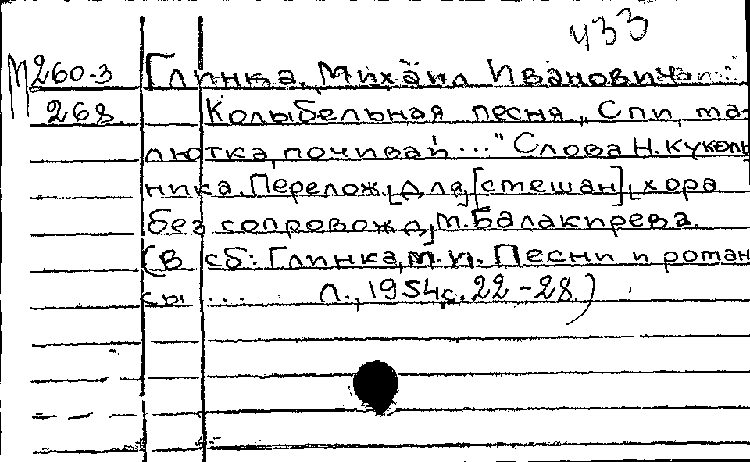 433
М260-3 Глинка, Михаил Иванович
268 Колыбельная песня „Спи, ма-
лютка, почивай..." Слова Н. Куколь
ника. Перелож. [для] [смешан], хора
без сопровожд, М. Балакирева.
(В сб: Глинка, М. И. Песни и роман
сы ... Л., 1954, с. 22-28.)